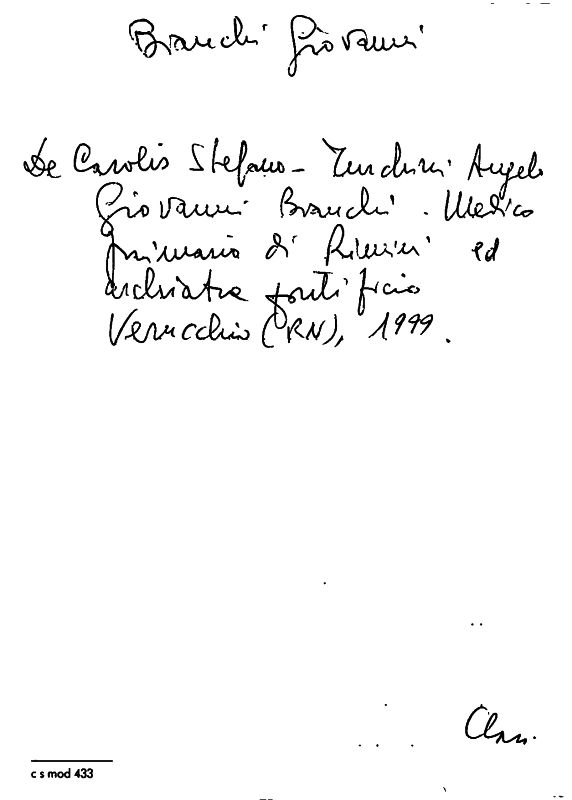 Bianchi Giovanni
De Carolis Stefano - Turchini Angelo
Giovanni Bianchi. Medico
primario di Rimini ed
archiatra pontificio
Verucchio (RN), 1999.
Clas.
c s mod 433